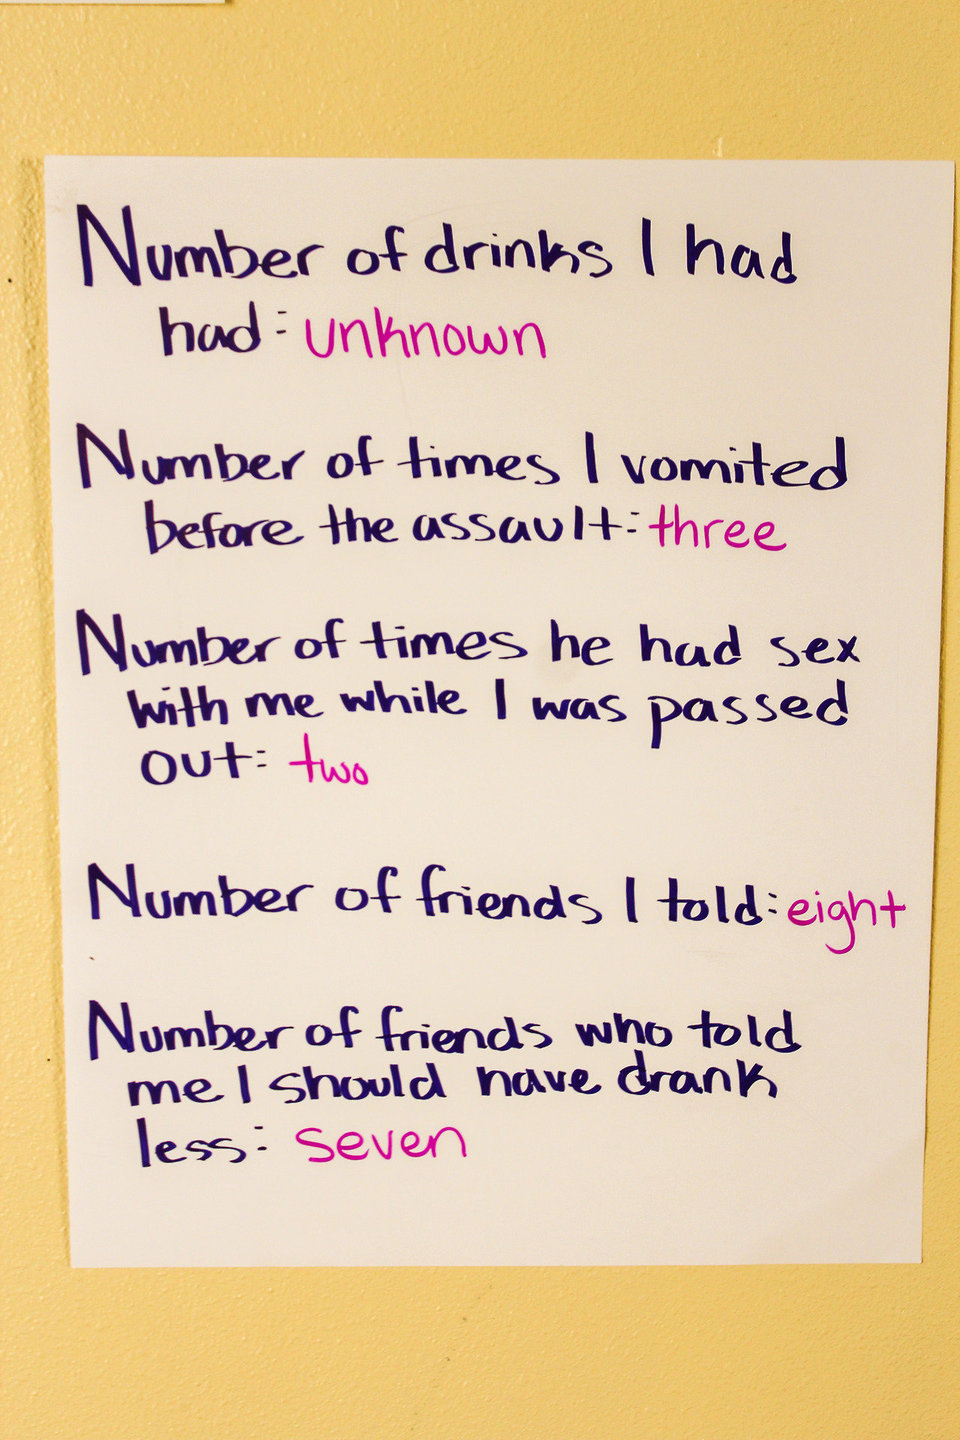 Number of drinks I had
had: unknown
Number of times I vomited
before the assault: three
Number of times he had sex
with me while I was passed
out: two
Number of friends I told: eight
Number of friends who told
me I should have drank
less: seven